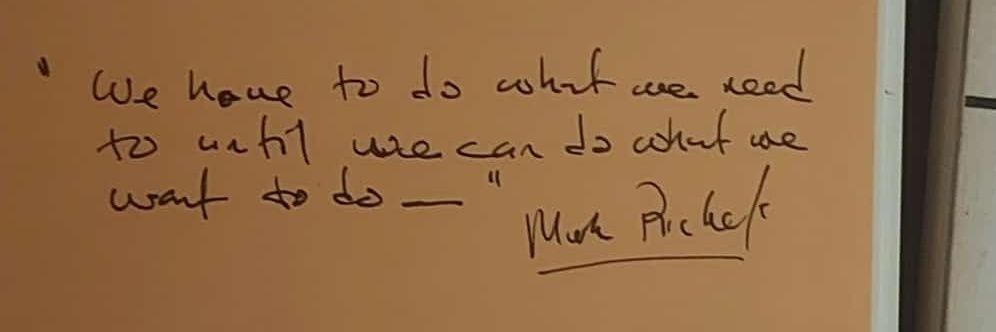 " We have to do what we need
to until we can do what we
want to do — "
Mark